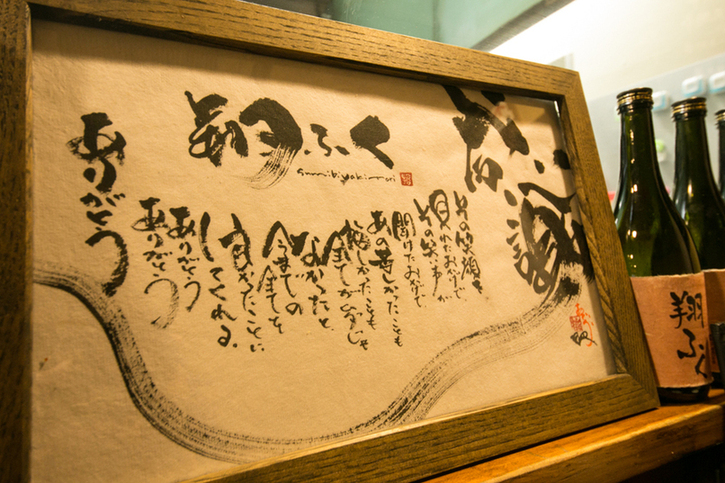 翔ふく
その笑顔が
おかげで
その笑い声が
聞けたおかげで
あの苦しかったことも
悔しかったことも
全てが無じゃ
なかったと、
今までの
全てを
良かったことに
してくれる。
ありがとう
ありがとう
ありがとう
翔ふく